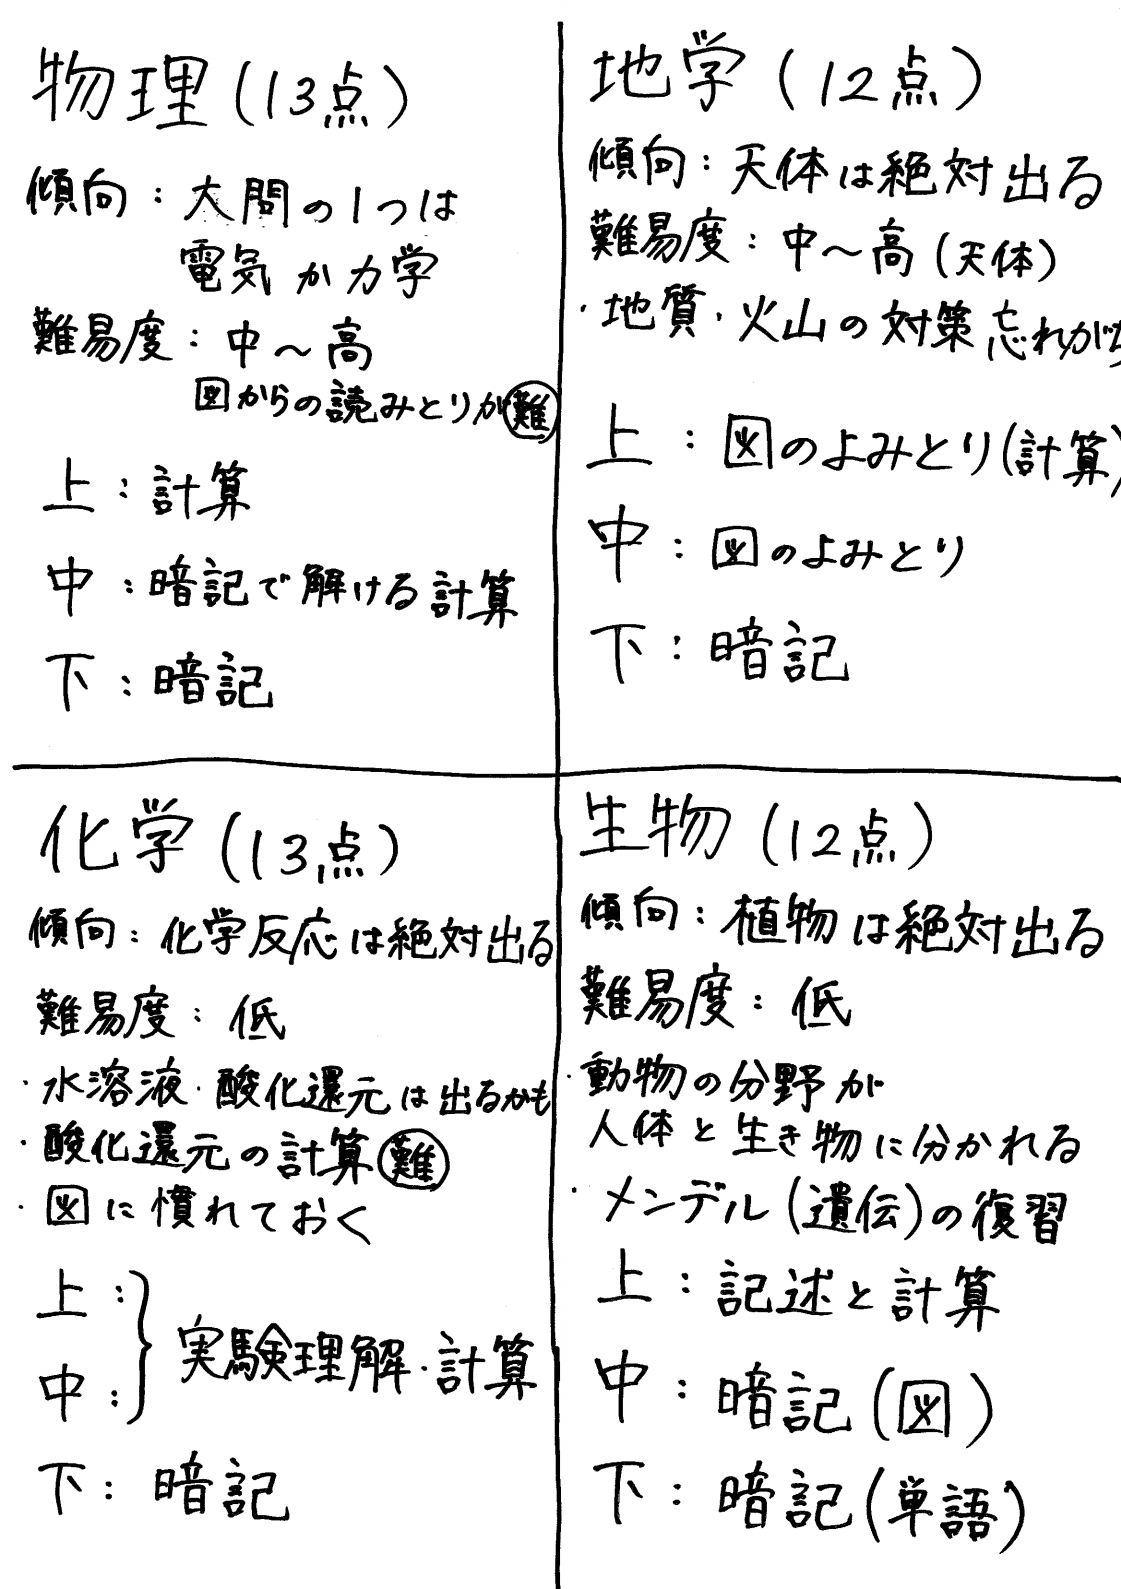 物理(13点)
傾向:大問の1つは
電気か力学
難易度:中~高
図からの読みとりが難
上:計算
中:暗記で解ける計算
下:暗記
地学(12点)
傾向:天体は絶対出る
難易度:中~高(天体)
・地質・火山の対策忘れがち
上:図のよみとり(計算)
中:図のよみとり
下:暗記
化学(13点)
傾向:化学反応は絶対出る
難易度:低
・水溶液・酸化還元は出るかも
・酸化還元の計算難
・図に慣れておく
上:
中:
実験理解・計算
下:暗記
生物(12点)
傾向:植物は絶対出る
難易度:低
・動物の分野が
人体と生き物に分かれる
・メンデル(遺伝)の復習
上:記述と計算
中:暗記(図)
下:暗記(単語)